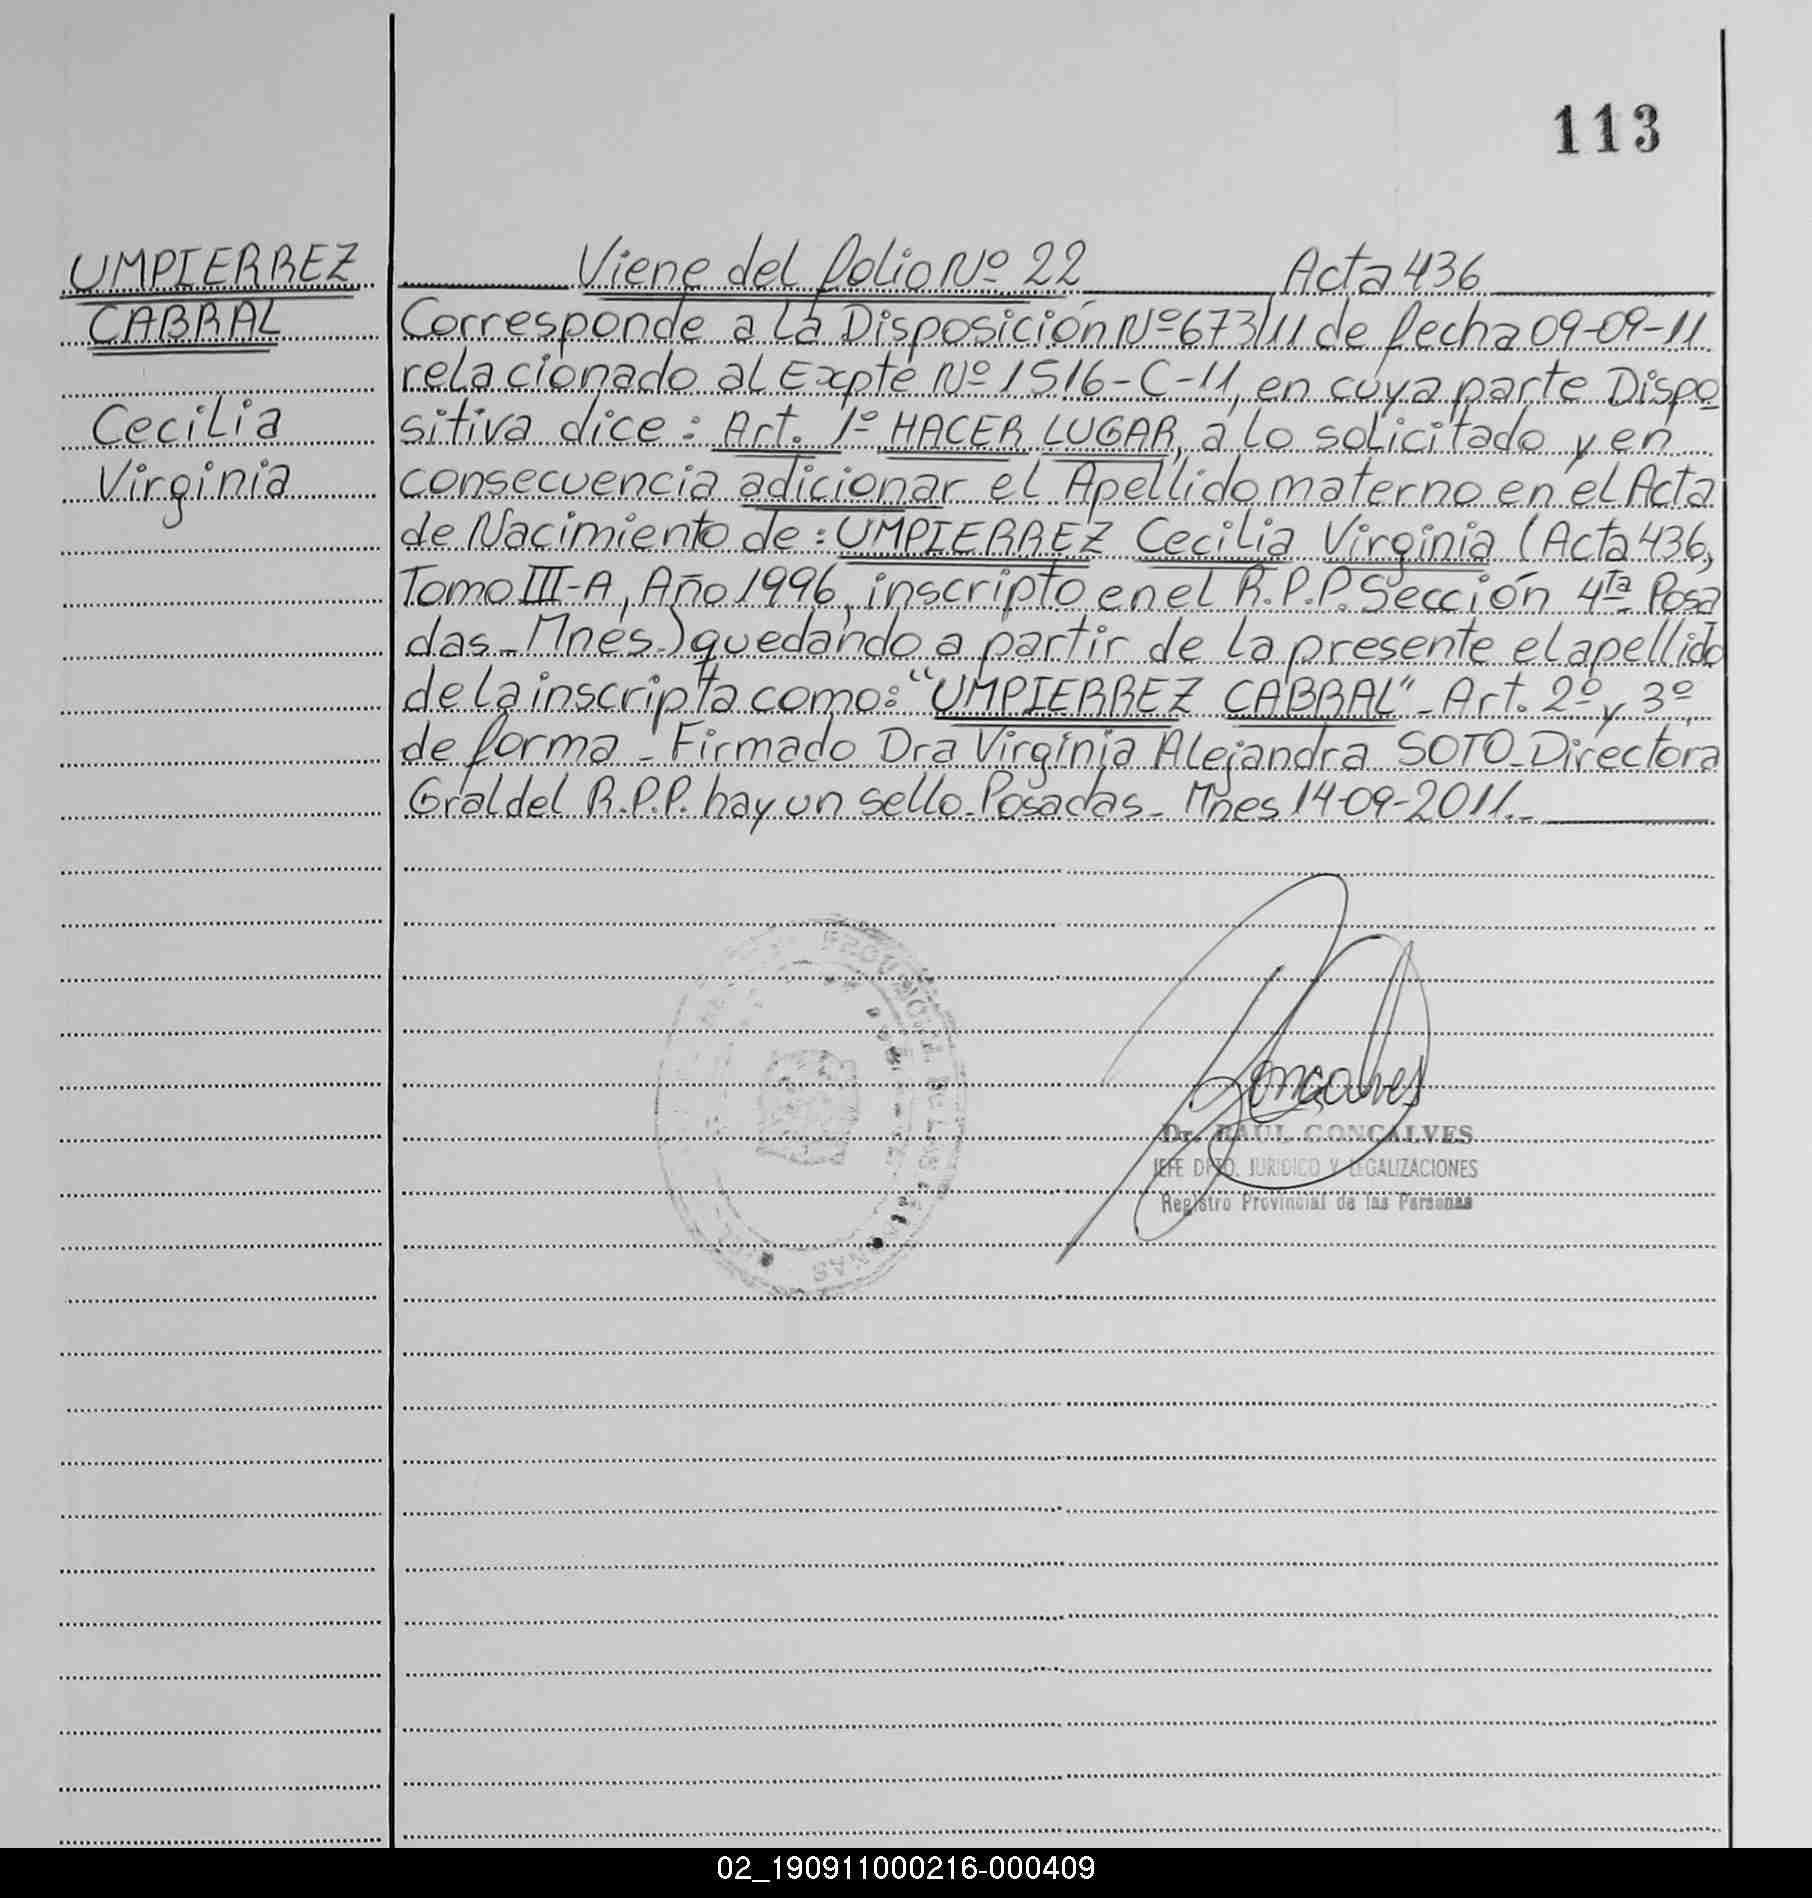 113
UMPIERREZ
CABRAL
Cecilia
Virginia
Viene del folio Nº 22 Acta 436
Corresponde a la Disposición Nº 673/11 de fecha 09-09-11
relacionado al Expte Nº 1516-C-11, en cuya parte Dispo
sitiva dice: Art. 1º HACER LUGAR, a lo solicitado y en
consecuencia adicionar el Apellido materno en el Acta
de Nacimiento de: UMPIERREZ Cecilia Virginia (Acta 436,
Tomo III-A, Año 1996, inscripto en el R.P.P. Sección 4ta Posa
das - Mnes.) quedando a partir de la presente el apellido
de la inscripta como: "UMPIERREZ CABRAL" - Art. 2º y 3º
de forma - Firmado Dra Virginia Alejandra SOTO - Directora
Gral del R.P.P. hay un sello - Posadas - Mnes 14-09-2011.-
Goncalves
Dr. RAUL GONCALVES
JEFE DPTO. JURIDICO Y LEGALIZACIONES
Registro Provincial de las Personas
02_190911000216-000409